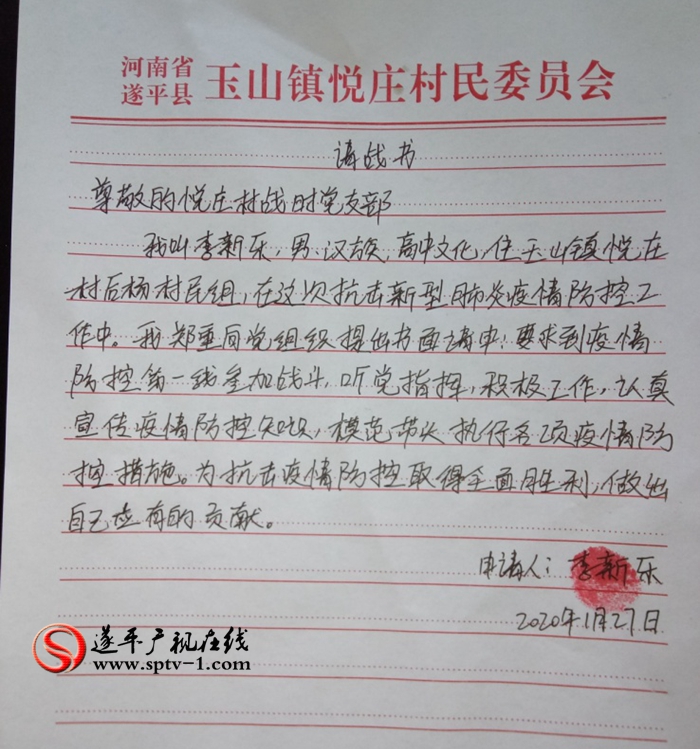 河南省
遂平县 玉山镇悦庄村民委员会
请战书
尊敬的悦庄村战时党支部
我叫李新乐,男、汉族,高中文化,住玉山镇悦庄
村后杨村民组,在这次抗击新型肺炎疫情防控工
作中。我郑重向党组织提出书面请申!要求到疫情
防控第一线参加战斗,听党指挥,积极工作,认真
宣传疫情防控知识,模范带头执行各项疫情防
控措施。为抗击疫情防控取得全面胜利,做出
自己应有的贡献。
申请人:李新乐
2020年1月27日
遂平广视在线
www.sptv-1.com